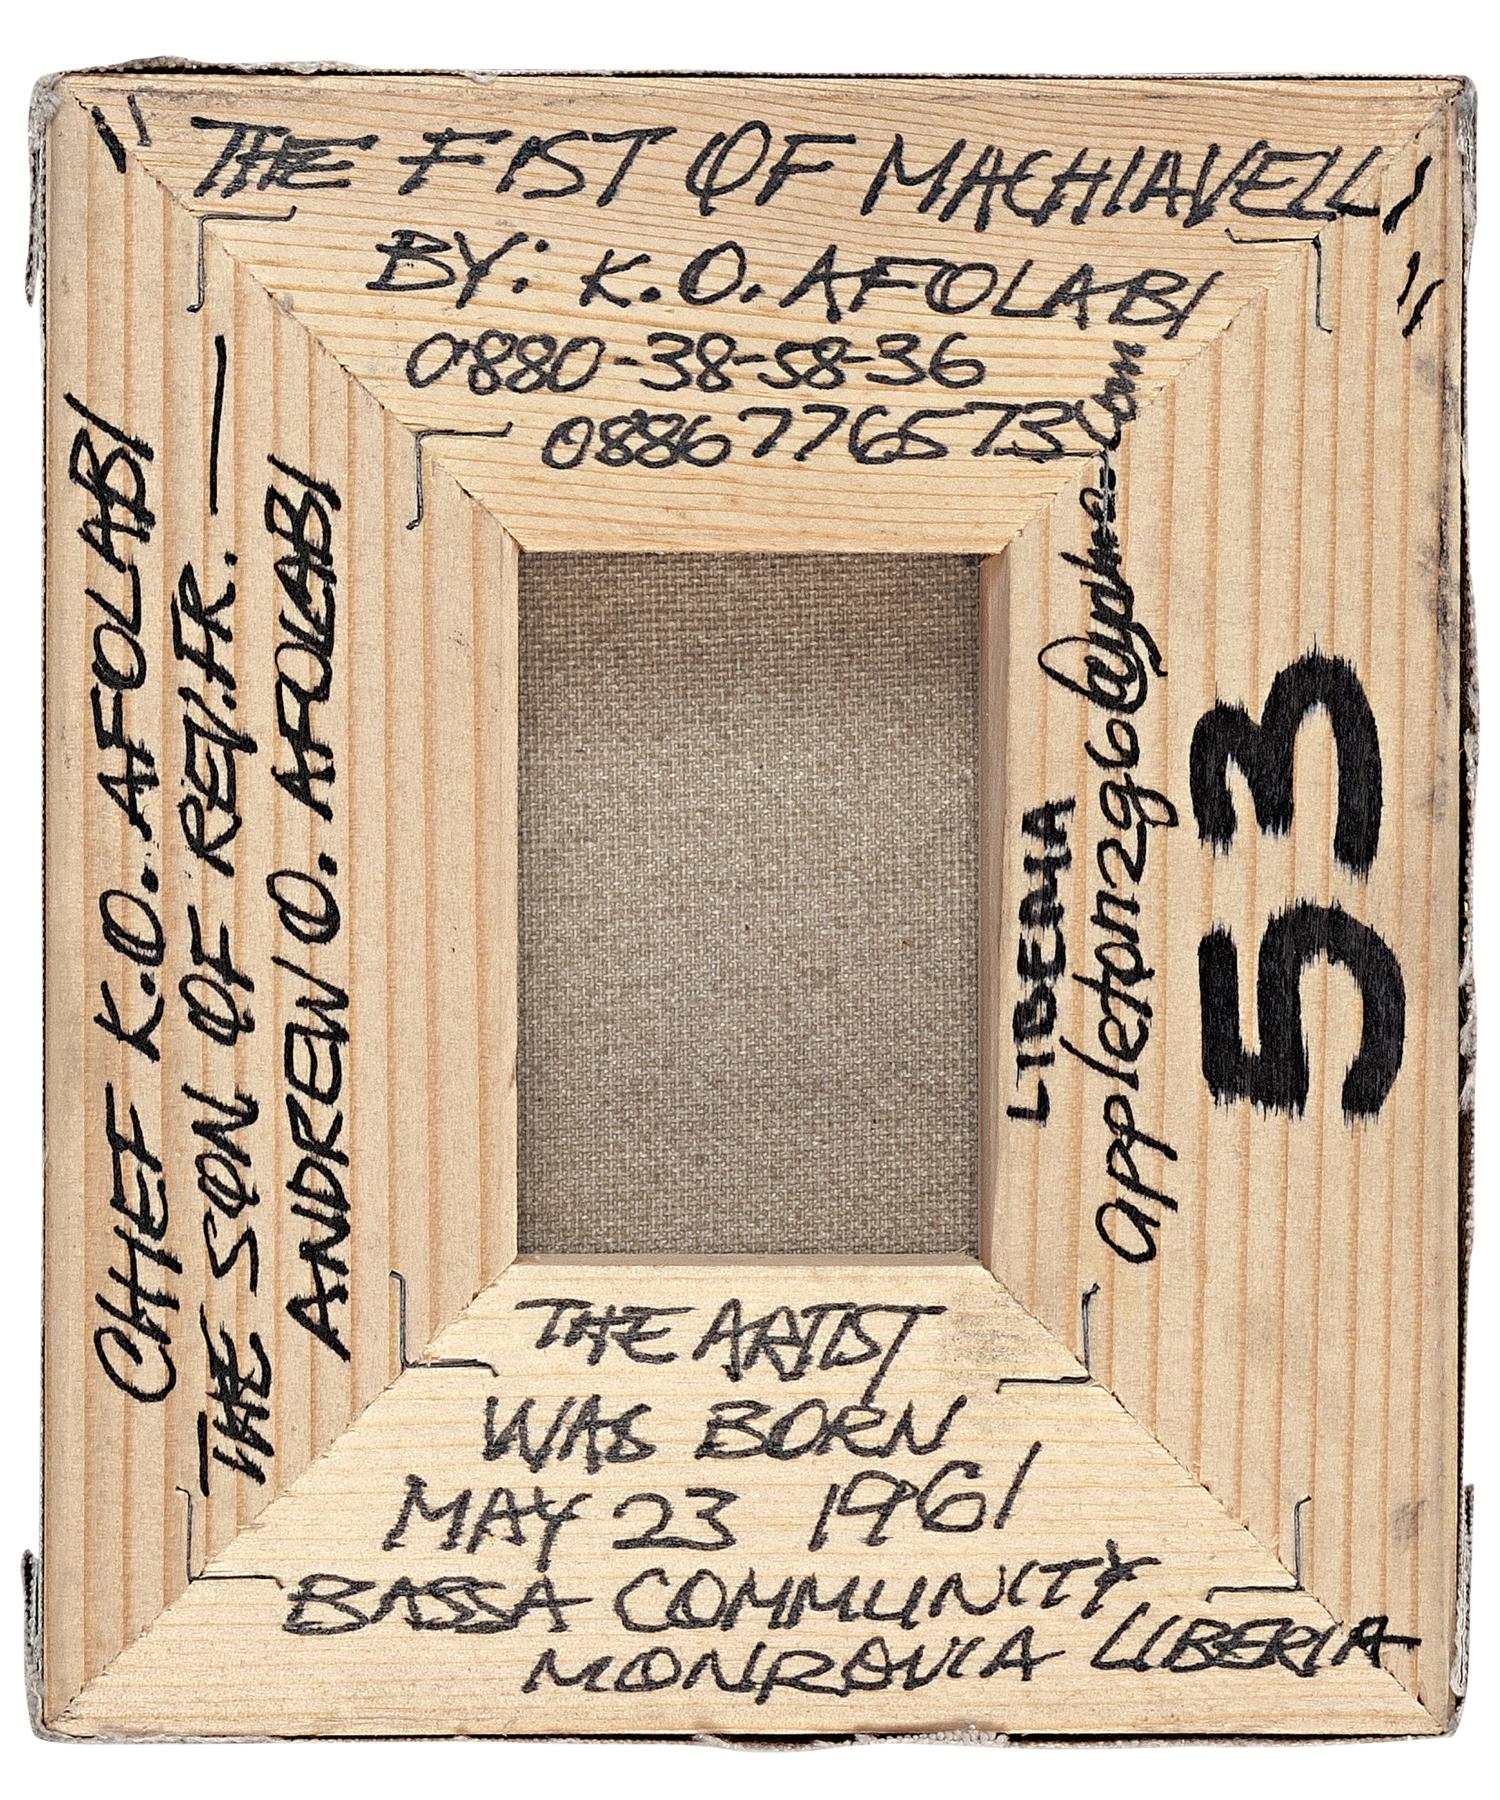 "THE FIST OF MACHIAVELLI"
BY: K.O. AFOLABI
0880-38-58-36
0886776573
CHIEF K.O. AFOLABI
THE SON OF REV. FR. —
ANDREW O. AFOLABI
LIBERIA
appletonzg6@yahoo.com
53
THE ARTIST
WAS BORN
MAY 23 1961
BASSA COMMUNITY
MONROVIA LIBERIA